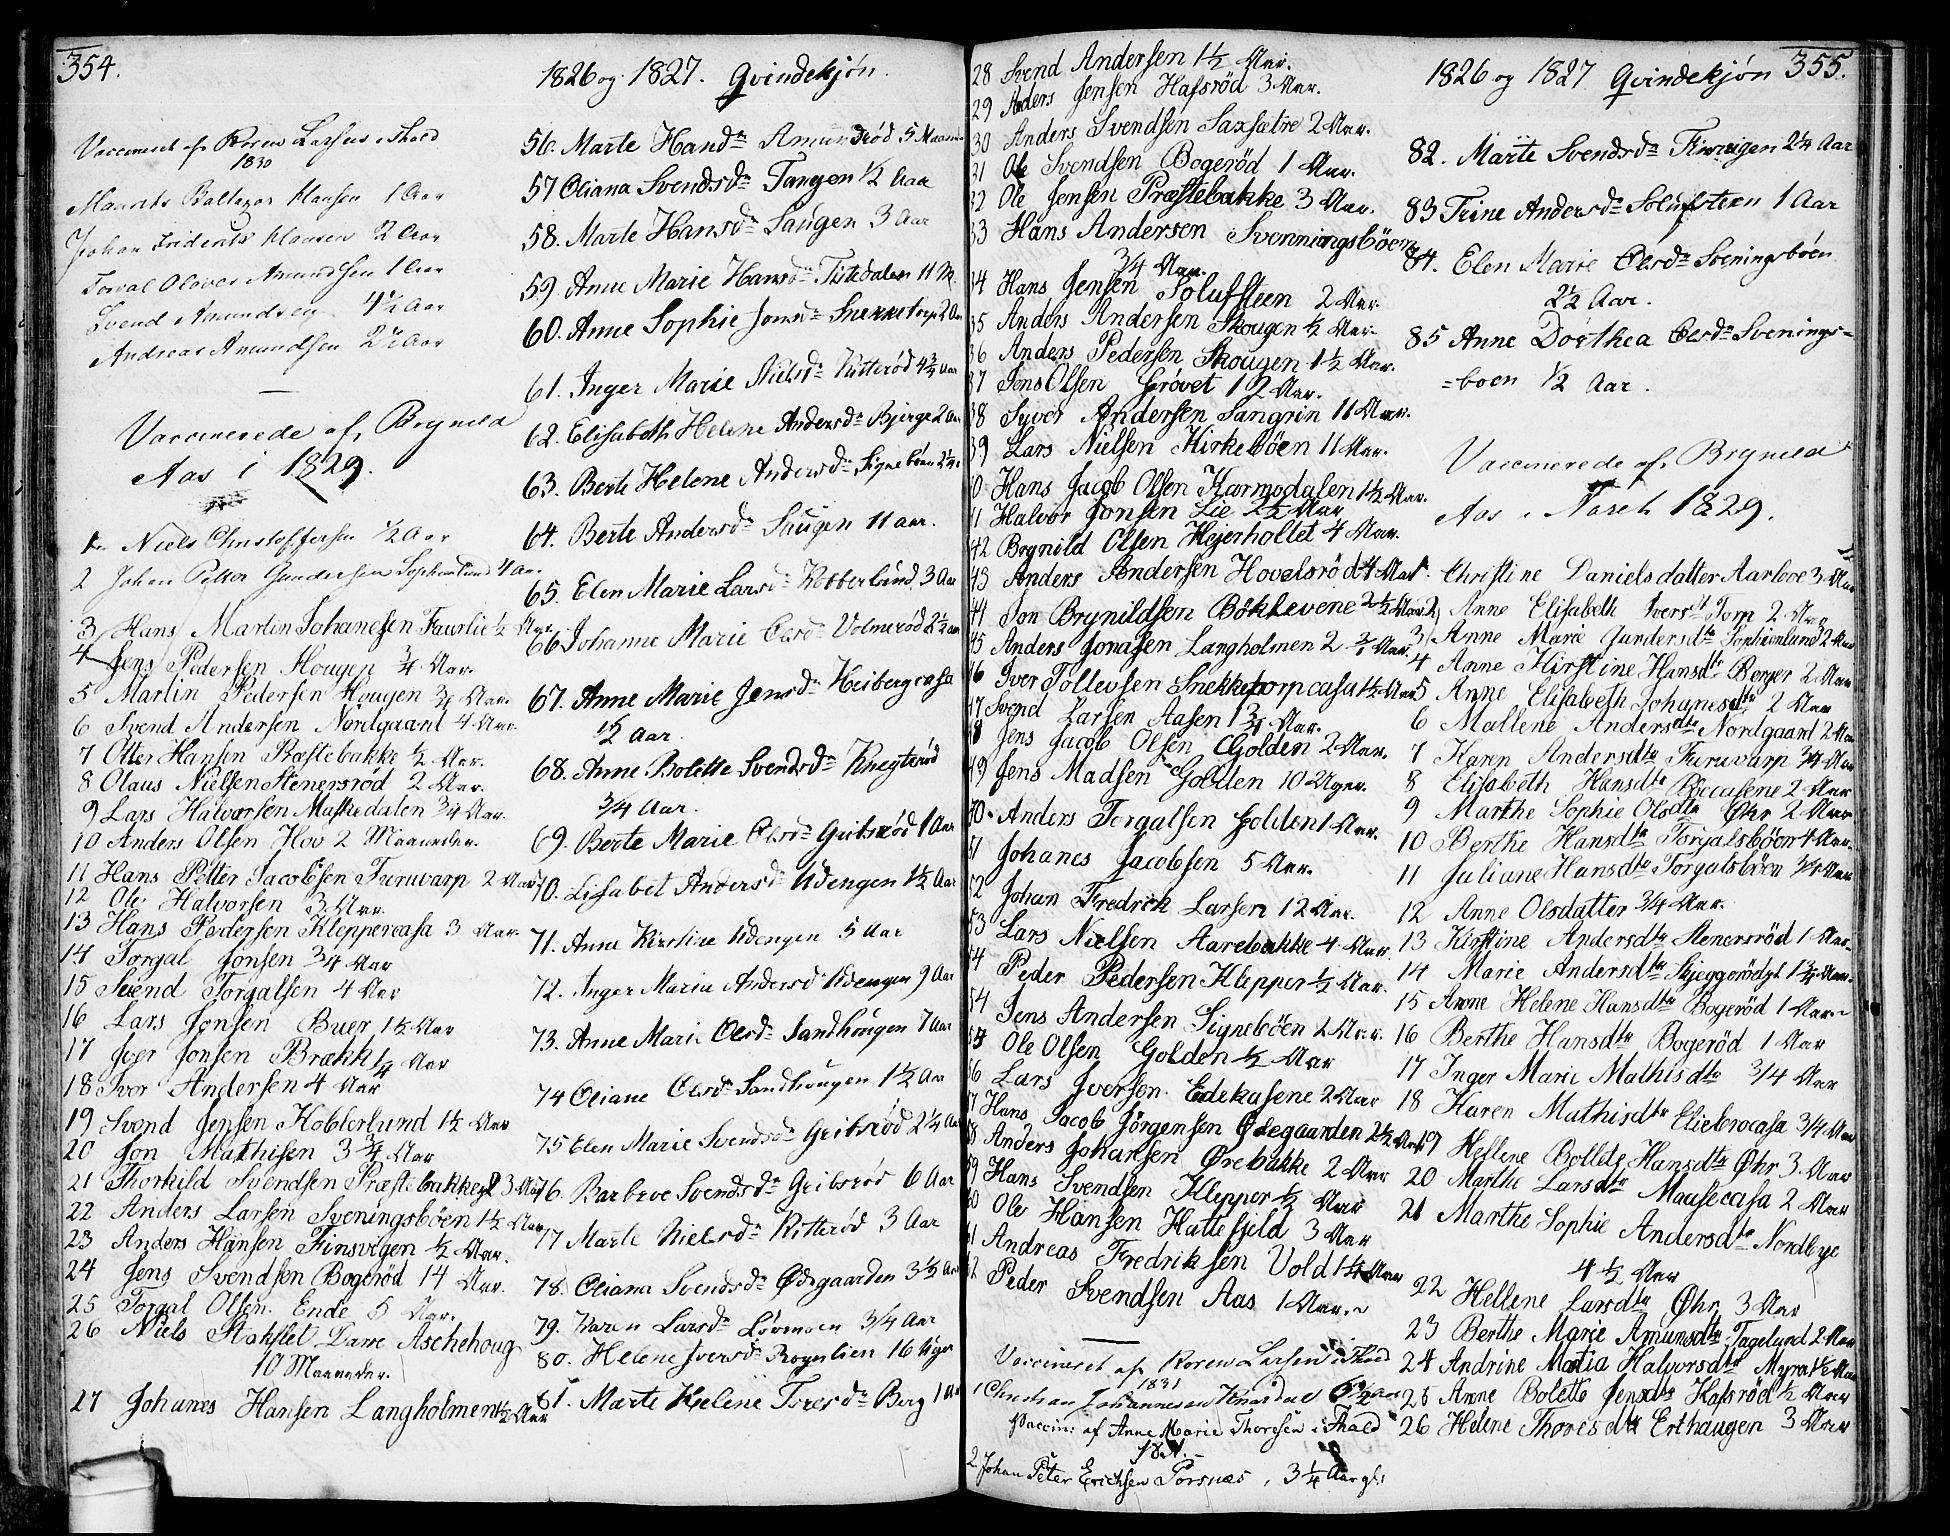 354.
Vaccineret af Koren Larsen i Thald
1830
Maurits Baltazar Hansen 1 Aar
Johan Fridentz Hansen 2 Aar
Torval Olaves Amundsen 1 Aar
Svend Amundsen 4½ Aar
Andreas Amundsen 2½ Aar
Vaccinerede af Brynild
Aas i 1829.
1 Niels Christoffersen ½ Aar
2 Johan Petter Gundersen Sophienlund 4 Aar.
3 Hans Martin Johanesen Faurlie ½ Aar
4 Jens Pedersen Hougen ¼ Aar.
5 Martin Pedersen Hougen ¾ Aar.
6 Svend Andersen Nordgaard 4 Aar.
7 Otter Hansen Præstebakke ½ Aar.
8 Olaus Nielsen Stenersrød 2 Aar.
9 Lars Halvorsen Maskedalen ¾ Aar.
10 Anders Olsen Hov 2 Maaneder.
11 Hans Petter Jacobsen Furuvarp 2 Aar
12 Ole Halvorsen 3 Aar.
13 Hans Pedersen Kleppercasa 3 Aar
14 Torgal Jonsen ¾ Aar
15 Svend Torgalsen 4 Aar
16 Lars Jonsen Buer 1½ Aar
17 Iver Jonsen Brækk ¼ Aar
18 Ivor Andersen 4 Aar
19 Svend Jensen Koblerlund 1½ Aar
20 Jon Mathisen 3¾ Aar
21 Thorkild Svendsen Præstebakke 3 Aar
22 Anders Larsen Sveningsböen 1½ Aar
23 Anders Hansen Finsvigen ½ Aar.
24 Jens Svendsen Bogerød 14 Aar.
25 Torgal Olsen Ende 5 Aar.
26 Niels Stokflet Darre Aschehoug
10 Maaneder.
27 Johanes Hansen Langholmen ½ Aar
1826 og 1827. Qvindekjøn.
56. Marte Hansdr Amundrød 5 Maaneder
57 Oliana Svendsdr Tangen ½ Aar
58. Marte Hansdr Haugen 3 Aar
59. Anne Marie Hansdr Tistedalen 11 M.
60. Anne Sophie Jonsdr Snekketorp 2 Aar
61. Inger Marie Nielsdr Kitterød 4¾ Aar
62. Elisabeth Helene Andersdr Bjerge 2 Aar
63. Berte Helene Andersdr Signebøen 2¼
64. Berte Andersdr Haugen 11 aar.
65. Elen Marie Larsdr Kobberlund 3 Aar
66 Johanne Marie Olesdr Volmerød 2½ aar
67. Anne Marie Jensdr Heibergcasa
½ Aar.
68. Anne Bolette Svendsdr Knegterød
¾ Aar.
69. Berte Marie Olesdr Gribsrød 1 Aar
70. Lisabet Andersdr Udengen 1½ Aar
71. Anne Kirstine Udengen 5 Aar
72. Inger Maria Andersdr Udengen 9 Aar
73. Anne Marie Olesdr Sandhougen 7 Aar
74 Oliane Olesdr Sandhougen 1½ Aar
75 Elen Marie Svendsdr Gribsrød 2¼ Aar
76. Barbroe Svendsdr Gribsrød 6 Aar
77 Marte Nielsdr Kitterød 3 Aar
78. Oliana Svendsdr Ødegaarden 3½ Aar
79. Karen Larsdr Lövmoen ¾ Aar
80. Helene Iversdr Rognlien 16 Uger
81. Marte Helene Toresdr Berg 1 Aar
28 Svend Andersen 1½ Aar.
29 Anders Jensen Hafsröd 3 Aar.
30 Anders Svendsen Saxsætre 2 Aar.
31 Ole Svendsen Bogeröd 1 Aar.
32 Ole Jensen Præstebakke 3 Aar.
33 Hans Andersen Svenningsböen
¾ Aar.
34 Hans Jensen Solufsteen 2 Aar
35 Anders Andersen Skougen ½ Aar.
36 Anders Pedersen Skougen 1½ Aar.
37 Jens Olsen Grövet 12 Aar.
38 Syver Andersen Sangrin 11 Aar.
39 Lars Nielsen Kirkeböen 11 Aar.
40 Hans Jacob Olsen Karmodalen 1½ Aar.
41 Halvor Jonsen Lie 2½ Aar
42 Brynild Olsen Hejerholtet 4 Aar.
43 Anders Andersen Hovelsröd 4 Aar
44 Jon Brynildsen Bökkevene 2½ Aar
45 Anders Jonasen Langholmen 2 ¾ Aar.
46 Iver Tollevsen Snekketorpcasa 1½ Aar
47 Svend Larsen Aasen 1¾ Aar.
48 Jens Jacob Olsen Golden 2 Aar.
49 Jens Madsen Golden 10 Uger.
50. Anders Torgalsen Golden 1 Aar.
51 Johanes Jacobsen 5 Aar.
52 Johan Fredrik Larsen 12 Aar.
53 Lars Nielsen Aarebakke 4 Aar
54 Peder Pedersen Klepper ½ Aar.
54 Jens Andersen Signeböen 2 Aar.
55 Ole Olsen Golden ½ Aar
56 Lars Iversen Edekasene 2 Aar
57 Hans Jacob Jörgensen Ödegaarden 2½ Aar
58 Anders Johansen Örebakke 2 Aar
59 Hans Svendsen Klepper ½ Aar
60 Ole Hansen Hattefjeld 3 Aar
61 Andreas Fredriksen Vold 1¼ Aar
62 Peder Svendsen Aas 1 Aar.
Vaccineret af Koren Larsen i Thald
1831
1 Christian Johannesen 6½ aar
Vaccin: af Anne Marie Thoresen i Thald
2 Johan Peter Erichsen Porsnæs, 3¼ Aar gl:
1826 og 1827 Qvindekjøn 355.
82. Marte Svendsdr Finvigen 2¼ Aar
83 Trine Andersdr Solufsteen 1 Aar
84. Elen Marie Olesdr Sveningsböen
2½ Aar.
85 Anne Dorthea Olesdr Svenings=
=boen ½ Aar.
Vaccinerede af Brynild
Aas i Næset 1829.
1. Christine Danielsdatter Aarlove 3 Aar
2 Anne Elisabeth Iversdr Torp 2 Aar
3 Anne Marie Gundersdtr Sophienlund 2 Aar
4 Anne Kirstine Hansdtr Berger 2 Aar
5 Anne Elisabeth Johanesdtr 2 Aar
6 Mallene Andersdtr Nordgaard 2 Aar
7 Karen Andersdtr Furuvarp ¾ Aar
8 Elisabeth Hansdtr Böecasene 2 Aar
9 Marthe Sophie Olsdtr Öhr 2 Aar
10 Berthe Hansdtr Torgalsböen 4 Aar.
11 Juliane Hansdtr Torgalsböen ¾ Aar
12 Anne Olsdatter ¾ Aar
13 Kirstine Andersdtr Stenersröd 1 Aar.
14 Marie Andersdtr Skjeggeröd 1¾ Aar.
15 Anne Helene Hansdtr Bogeröd 1 Aar.
16 Berthe Hansdtr Bogeröd 1 Aar
17 Inger Marie Mathisdtr ¾ Aar
18 Karen Mathisdtr Eliebrocasa ¾ Aar
19 Hellene Bollete Hansdtr Öhr 3 Aar
20 Marthe Larsdtr Mausecasa 2 Aar
21 Marthe Sophie Andersdtr Nordbye
4½ Aar
22 Hellene Larsdtr Öhr 3 Aar
23 Berthe Marie Amunsdtr Tagelund 2 Aar
24 Andrine Matia Halvorsdtr Myra 1½ Aar
25 Anne Bolette Jensdtr Hafsröd ½ Aar
26 Helene Thoresdtr Erthaugen 3 Aar